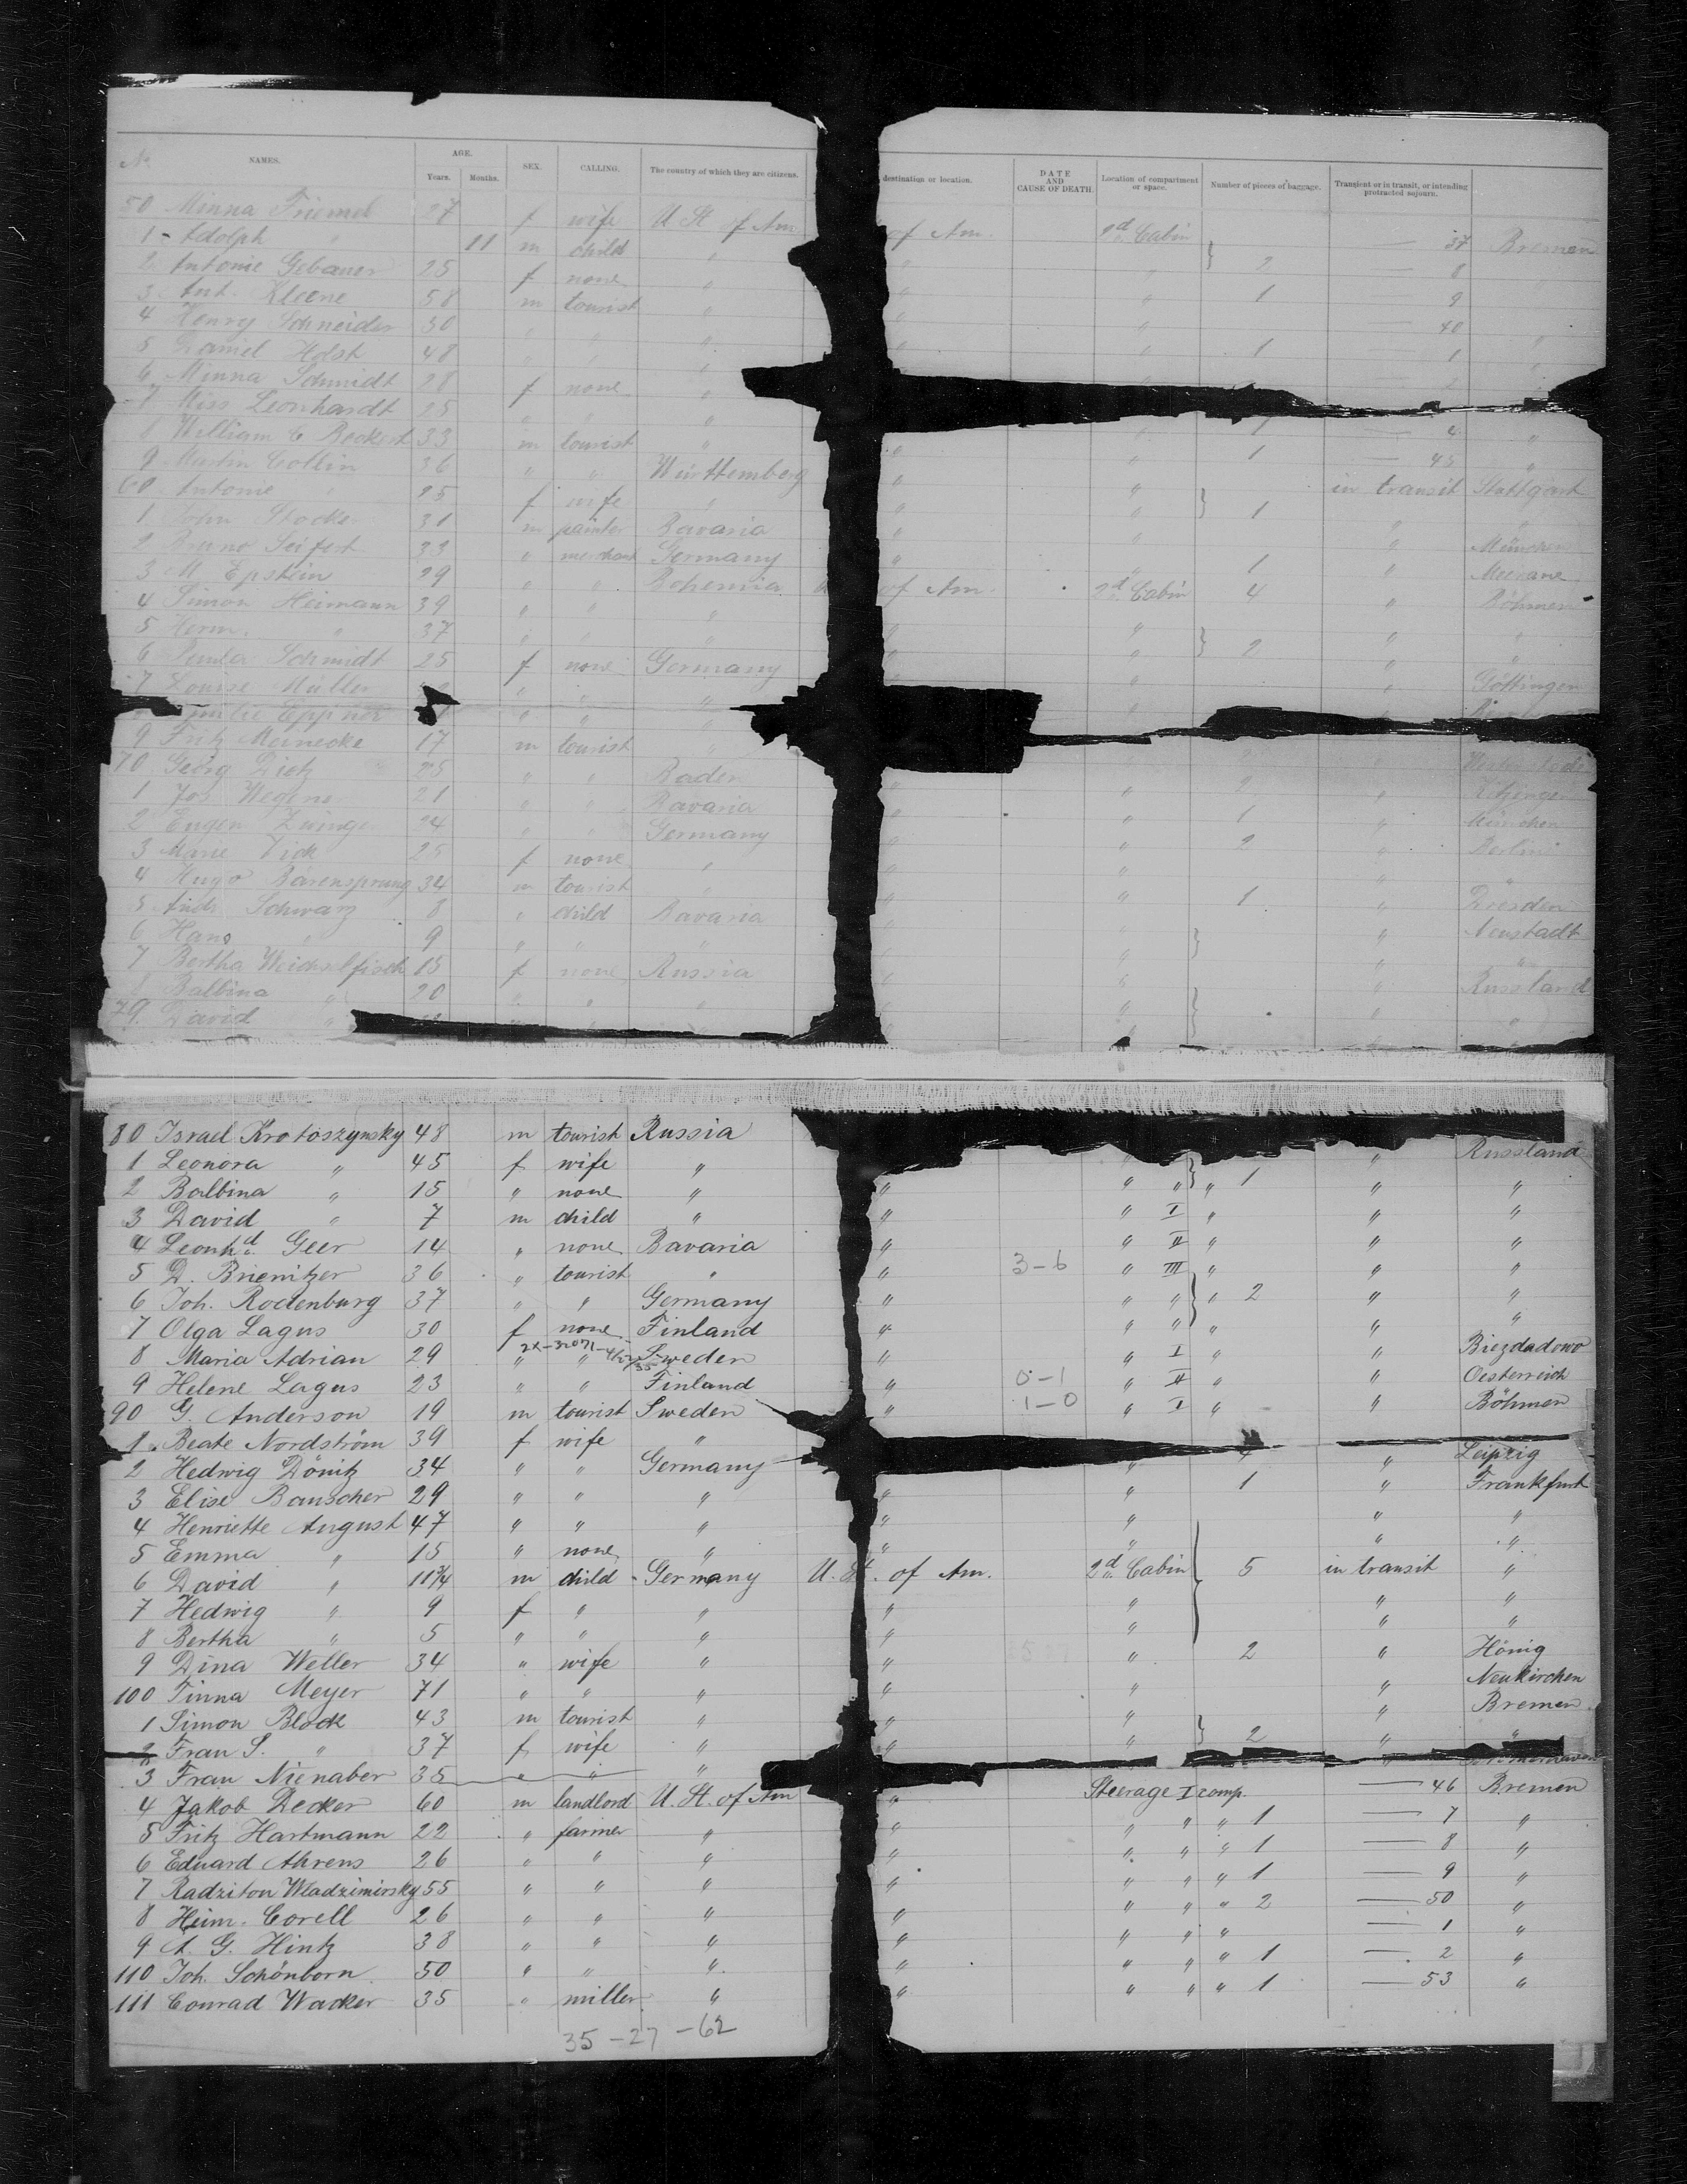 No. NAMES. AGE. Years. Months. SEX. CALLING. The country of which they are citizens. destination or location. DATE AND CAUSE OF DEATH. Location of compartment or space. Number of pieces of baggage. Transient or in transit, or intending protracted sojourn.
50 Minna Friemel 27 f wife U. St. of Am of Am. 2d Cabin
1 Adolph " 11 m child " " 37 Bremen
2 Antonie Gebauer 25 f none " " 2 8
3 Ant. Kleene 58 m tourist " " 1 9
4 Henry Schneider 30 " " " " 40
5 Daniel Holst 48 " " " " 1 1
6 Minna Schmidt 28 f none "
7 Miss Leonhardt 25 " "
8 William C Bockert 33 m tourist " 4 "
9 Martin Collin 36 " " Württemberg " " 1 45 "
60 Antonie " 25 f wife " " in transit Stuttgart
1 John Stocker 31 m painter Bavaria " " 1 " "
2 Bruno Seifert 33 " merchant Germany " " " München
3 M Epstein 29 " " Bohemia of Am. 2d Cabin 1 " Meerane
4 Simon Heimann 39 " " " 4 " Böhmen
5 Herm. " 37 " " " " " "
6 Paula Schmidt 25 f none Germany " " 2 " "
7 Louise Müller " " " " " Göttingen
Eppner " " "
9 Fritz Meinecke 17 m tourist "
70 Georg Dietz 25 " " Baden
1 Jos. Wegener 21 " " Bavaria " 2 "
2 Eugen Zwinger 24 " " Germany " 1 " München
3 Marie Dick 25 f none " " 2 " Berlin
4 Hugo Bärensprung 34 m tourist " " " "
5 Schwarz 8 " child Bavaria " 1 " Dresden
6 Hans " 9 " " " " " Neustadt
7 Bertha Weichselfisch 15 f none Russia " " "
8 Balbina " 20 " " " " Russland
79 David " " "
80 Israel Krotoszynsky 48 m tourist Russia
1 Leonora " 45 f wife " " Russland
2 Balbina " 15 " none " " " " " 1 " "
3 David " 7 m child " " " I " " "
4 Leonhd. Geer 14 " none Bavaria " " II " " "
5 D. Brienitzer 36 " tourist " " 3-6 " III " " "
6 Joh. Rodenburg 37 " " Germany " " " " 2 " "
7 Olga Lagus 30 f none Finland " " " " " "
8 Maria Adrian 29 " " Sweden " " I " " Biezdadowo
9 Helene Lagus 23 " " Finland " 0-1 " II " " Oesterreich
90 G. Anderson 19 m tourist Sweden " 1-0 " I " " Böhmen
1 Beate Nordström 39 f wife "
2 Hedwig Dönitz 34 " " Germany " " Leipzig
3 Elise Bauscher 29 " " " " " 1 " Frankfurt
4 Henriette August 47 " " " " " " "
5 Emma " 15 " none " " " " "
6 David " 11¾ m child Germany U. St. of Am. 2d Cabin 5 in transit "
7 Hedwig " 9 f " " " " " "
8 Bertha " 5 " " " " " " "
9 Dina Weller 34 " wife " " " 2 " Hönig
100 Tinna Meyer 71 " " " " " " Neukirchen
1 Simon Block 43 m tourist " " " " Bremen
2 Frau S. " 37 f wife " " " 2 " "
3 Frau Nienaber 35 " " "
4 Jakob Decker 60 m landlord U. St. of Am " Steerage I comp. 46 Bremen
5 Fritz Hartmann 22 " farmer " " " " " 1 7 "
6 Eduard Ahrens 26 " " " " " " " 1 8 "
7 Radziton Wladzimirsky 55 " " " " " " " 1 9 "
8 Heim. Corell 26 " " " " " " " 2 50 "
9 A. G. Hintz 38 " " " " " " " 1 "
110 Joh. Schönborn 50 " " " " " " " 1 2 "
111 Conrad Wacker 35 " miller " " " " " 1 53 "
35-27-62